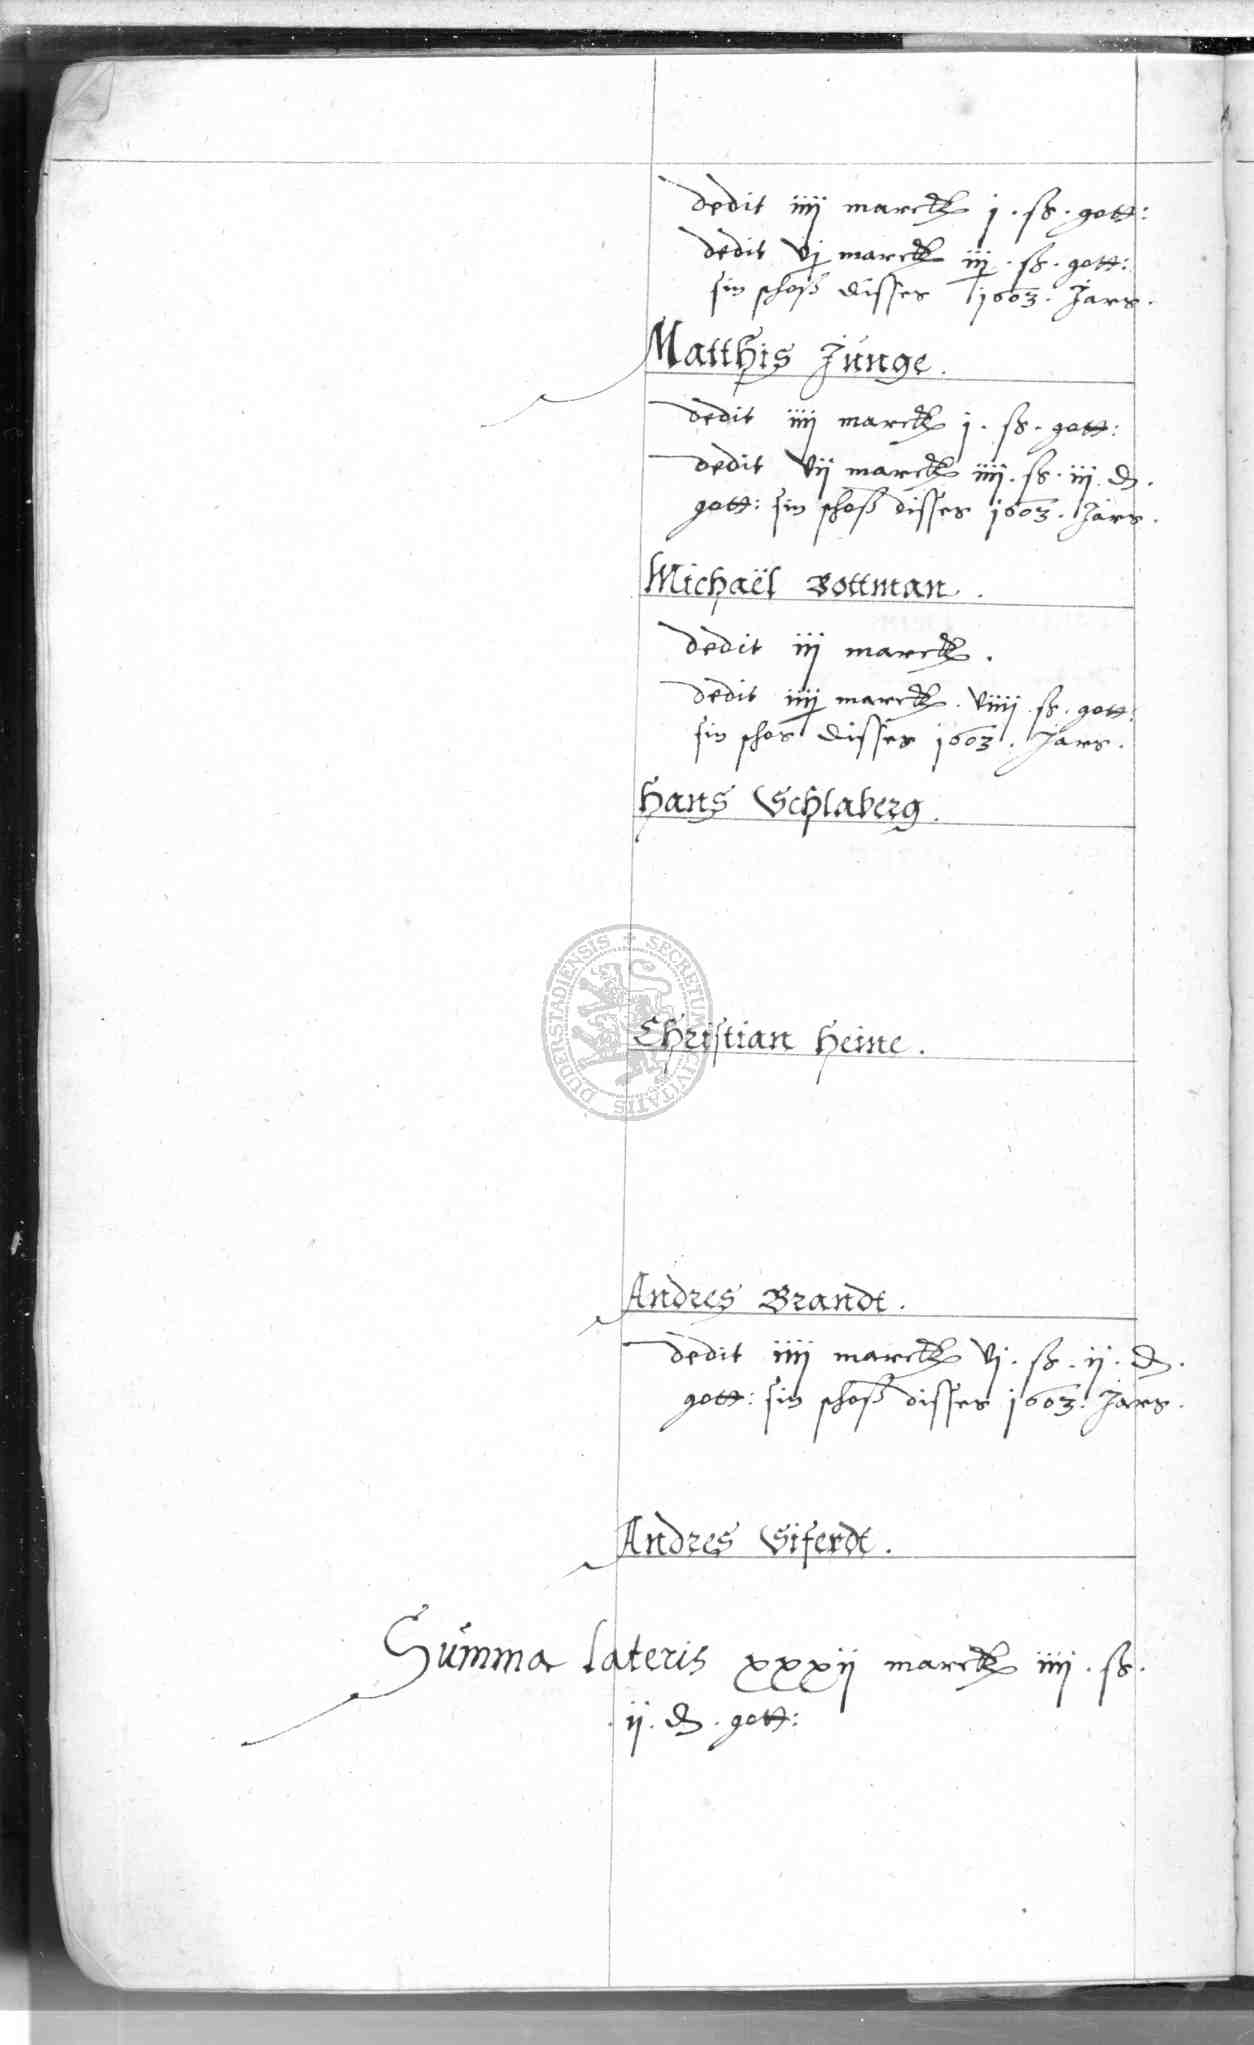 dedit iiij marck j. ß. gott:
dedit vj marck iij. ß. gott:
sin schoß disses 1603. Jars.
Matthis Junge.
dedit iiij marck j. ß. gott:
dedit vij marck iiij. ß. iij. d.
gott: sin schoß disses 1603. Jars.
Michaël Bottman.
dedit iij marck.
dedit iiij marck. viiij ß. gott:
sin schos disses 1603. Jars.
Hans Schlaberg.
Christian Heine.
Andres Brandt.
dedit iiij marck vj. ß. ij. d.
gott: sin schoß disses 1603. Jars.
Andres Siferdt.
Summa lateris xxxij marck iiij. ß.
ij. d. gott:
SECRETUM CIVITATIS DUDERSTADIENSIS